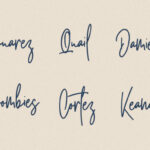 uarez Quail Damie
ombies Cortez Keano